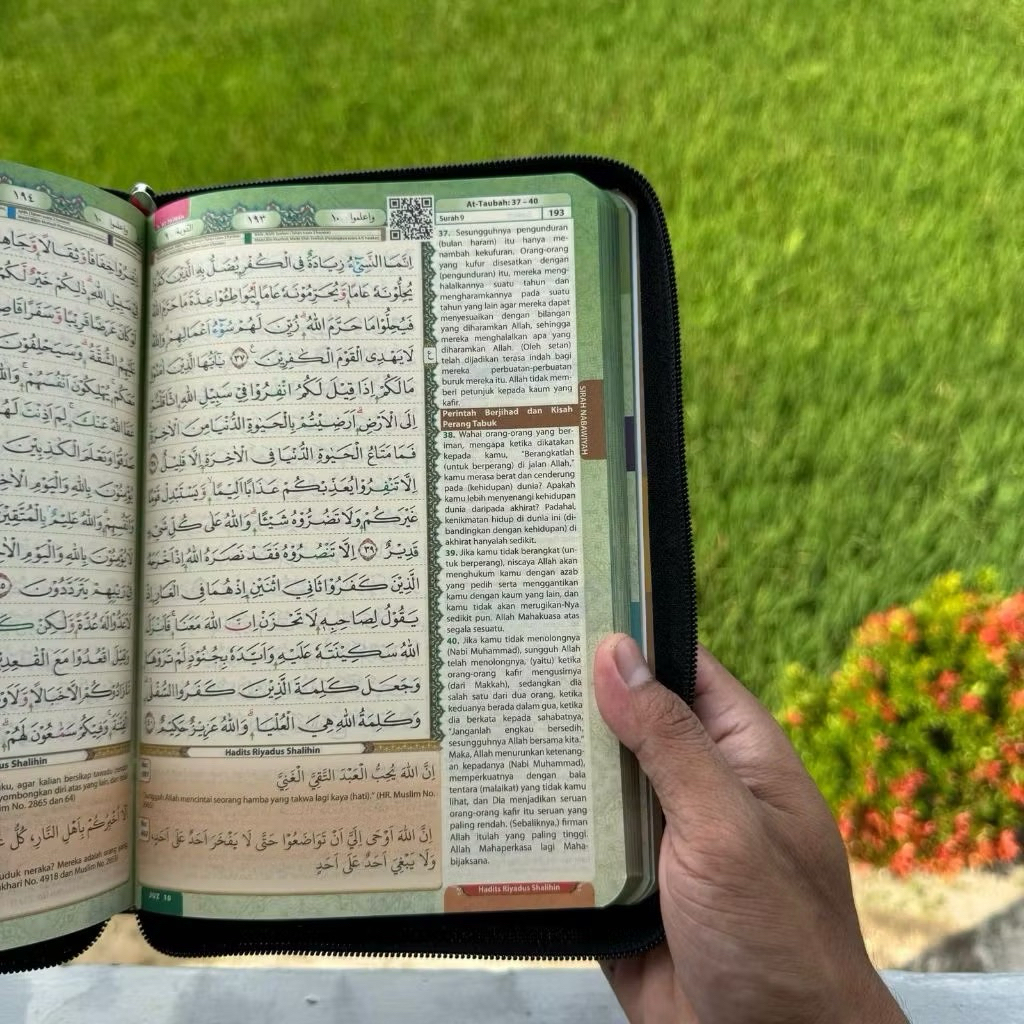 At-Taubah: 37 – 40
Surah 9
193
واعلموا ١٠
١٩٣
التوبة ٩
اِنَّمَا النَّسِيْۤءُ زِيَادَةٌ فِى الْكُفْرِ يُضَلُّ بِهِ الَّذِيْنَ
يُحِلُّوْنَهٗ عَامًا وَّيُحَرِّمُوْنَهٗ عَامًا لِّيُوَاطِـُٔوْا عِدَّةَ مَا حَرَّمَ اللّٰهُ
فَيُحِلُّوْا مَا حَرَّمَ اللّٰهُ ۗ زُيِّنَ لَهُمْ سُوْۤءُ اَعْمَالِهِمْ وَاللّٰهُ
لَا يَهْدِى الْقَوْمَ الْكٰفِرِيْنَ ࣖ ٣٧ يٰٓاَيُّهَا الَّذِيْنَ اٰمَنُوْا
مَا لَكُمْ اِذَا قِيْلَ لَكُمُ انْفِرُوْا فِيْ سَبِيْلِ اللّٰهِ اثَّاقَلْتُمْ
اِلَى الْاَرْضِ ۗ اَرَضِيْتُمْ بِالْحَيٰوةِ الدُّنْيَا مِنَ الْاٰخِرَةِ
فَمَا مَتَاعُ الْحَيٰوةِ الدُّنْيَا فِى الْاٰخِرَةِ اِلَّا قَلِيْلٌ
اِلَّا تَنْفِرُوْا يُعَذِّبْكُمْ عَذَابًا اَلِيْمًا ۙ وَّيَسْتَبْدِلْ قَوْمًا
غَيْرَكُمْ وَلَا تَضُرُّوْهُ شَيْـًٔا ۗ وَاللّٰهُ عَلٰى كُلِّ شَيْءٍ
قَدِيْرٌ ٣٩ اِلَّا تَنْصُرُوْهُ فَقَدْ نَصَرَهُ اللّٰهُ اِذْ اَخْرَجَهُ
الَّذِيْنَ كَفَرُوْا ثَانِيَ اثْنَيْنِ اِذْ هُمَا فِى الْغَارِ اِذْ
يَقُوْلُ لِصَاحِبِهٖ لَا تَحْزَنْ اِنَّ اللّٰهَ مَعَنَا ۚ فَاَنْزَلَ
اللّٰهُ سَكِيْنَتَهٗ عَلَيْهِ وَاَيَّدَهٗ بِجُنُوْدٍ لَّمْ تَرَوْهَا
وَجَعَلَ كَلِمَةَ الَّذِيْنَ كَفَرُوا السُّفْلٰى
وَكَلِمَةُ اللّٰهِ هِيَ الْعُلْيَا ۗ وَاللّٰهُ عَزِيْزٌ حَكِيْمٌ ٤٠
Hadits Riyadus Shalihin
اِنَّ اللّٰهَ يُحِبُّ الْعَبْدَ التَّقِيَّ الْغَنِيَّ
Allah mencintai seorang hamba yang takwa lagi kaya (hati)." (HR. Muslim No.
اِنَّ اللّٰهَ اَوْحٰى اِلَيَّ اَنْ تَوَاضَعُوْا حَتّٰى لَا يَفْخَرَ اَحَدٌ عَلٰى اَحَدٍ
وَلَا يَبْغِيَ اَحَدٌ عَلٰى اَحَدٍ
JUZ 10
37. Sesungguhnya pengunduran
(bulan haram) itu hanya me-
nambah kekufuran. Orang-orang
yang kufur disesatkan dengan
(pengunduran) itu, mereka meng-
halalkannya suatu tahun dan
mengharamkannya pada suatu
tahun yang lain agar mereka dapat
menyesuaikan dengan bilangan
yang diharamkan Allah, sehingga
mereka menghalalkan apa yang
diharamkan Allah. (Oleh setan)
telah dijadikan terasa indah bagi
mereka perbuatan-perbuatan
buruk mereka itu. Allah tidak mem-
beri petunjuk kepada kaum yang
kafir.
Perintah Berjihad dan Kisah
Perang Tabuk
38. Wahai orang-orang yang ber-
iman, mengapa ketika dikatakan
kepada kamu, "Berangkatlah
(untuk berperang) di jalan Allah,"
kamu merasa berat dan cenderung
pada (kehidupan) dunia? Apakah
kamu lebih menyenangi kehidupan
dunia daripada akhirat? Padahal,
kenikmatan hidup di dunia ini (di-
bandingkan dengan kehidupan) di
akhirat hanyalah sedikit.
39. Jika kamu tidak berangkat (un-
tuk berperang), niscaya Allah akan
menghukum kamu dengan azab
yang pedih serta menggantikan
kamu dengan kaum yang lain, dan
kamu tidak akan merugikan-Nya
sedikit pun. Allah Mahakuasa atas
segala sesuatu.
40. Jika kamu tidak menolongnya
(Nabi Muhammad), sungguh Allah
telah menolongnya, (yaitu) ketika
orang-orang kafir mengusirnya
(dari Makkah), sedangkan dia
salah satu dari dua orang, ketika
keduanya berada dalam gua, ketika
dia berkata kepada sahabatnya,
"Janganlah engkau bersedih,
sesungguhnya Allah bersama kita."
Maka, Allah menurunkan ketenang-
an kepadanya (Nabi Muhammad),
memperkuatnya dengan bala
tentara (malaikat) yang tidak kamu
lihat, dan Dia menjadikan seruan
orang-orang kafir itu seruan yang
paling rendah. (Sebaliknya,) firman
Allah itulah yang paling tinggi.
Allah Mahaperkasa lagi Maha-
bijaksana.
Hadits Riyadus Shalihin
SIRAH NABAWIYAH
واعلموا ١٠
١٩٤
خِفَافًا وَّثِقَالًا
سَبِيْلِ اللّٰهِ ۗ ذٰلِكُمْ خَيْرٌ لَّكُمْ
كَانَ عَرَضًا قَرِيْبًا وَّسَفَرًا
الشُّقَّةُ ۗ وَسَيَحْلِفُوْنَ
يُهْلِكُوْنَ اَنْفُسَهُمْ ۚ وَاللّٰهُ
اللّٰهُ عَنْكَ ۚ لِمَ اَذِنْتَ لَهُمْ
وَتَعْلَمَ الْكٰذِبِيْنَ
يُؤْمِنُوْنَ بِاللّٰهِ وَالْيَوْمِ
وَاللّٰهُ عَلِيْمٌ ۢ بِالْمُتَّقِيْنَ
يُؤْمِنُوْنَ بِاللّٰهِ وَالْيَوْمِ
رَيْبِهِمْ يَتَرَدَّدُوْنَ
لَهٗ عُدَّةً وَّلٰكِنْ
وَقِيْلَ اقْعُدُوْا مَعَ الْقٰعِدِيْنَ
زَادُوْكُمْ اِلَّا خَبَالًا
الْفِتْنَةَ ۚ وَفِيْكُمْ سَمّٰعُوْنَ لَهُمْ
Shalihin
agar kalian bersikap tawadu
diri atas yang lain, dan
No. 2865 dan 64)
اَلَا اُخْبِرُكُمْ بِاَهْلِ النَّارِ، كُلُّ
neraka? Mereka adalah orang
No. 4918 dan Muslim No. 2853)